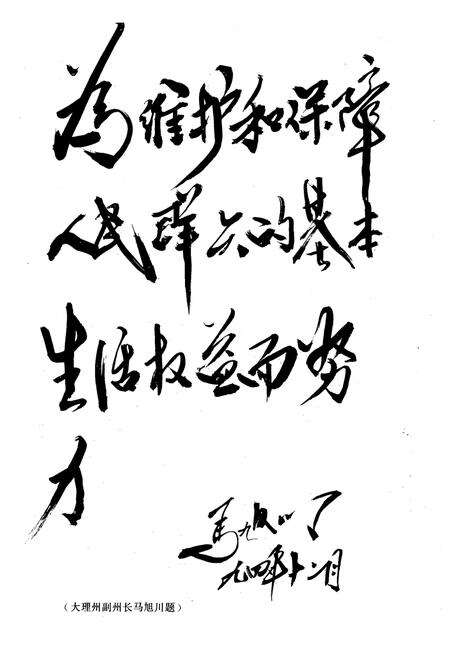 为维护和保障
人民群众的基本
生活权益而努
力
马旭川
九四年十二月
（大理州副州长马旭川题）